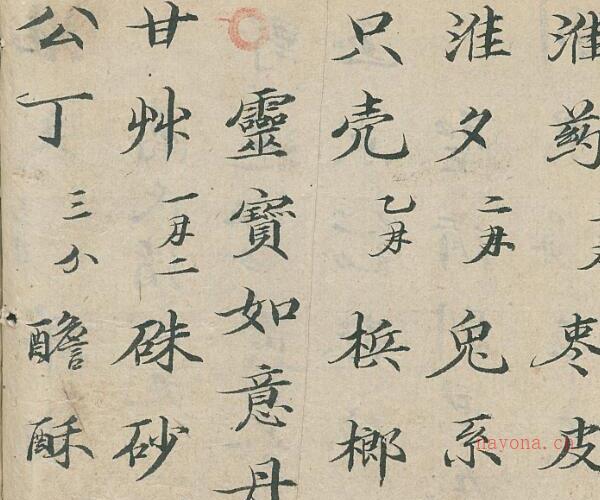 淮药 枣皮
淮夕 二𠀍 兔系
只壳 乙𠀍 梹榔
靈寶如意丹
甘艸 一𠀍二 硃砂
公丁 三分 醦酥
nayona.cn